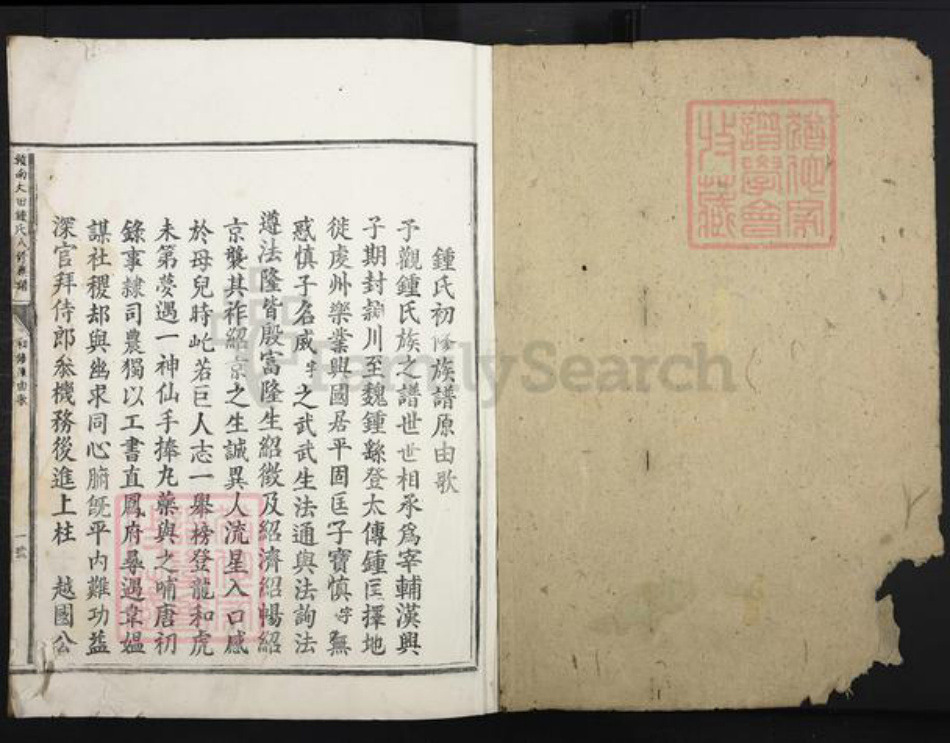 鍾氏初修族譜原由歌
予觀鍾氏族之譜世世相承爲宰輔漢興
子期封潁川至魏鍾繇登太傅鍾匡擇地
徙虔州樂業興國居平固匡子寶慎字無
惑慎子名威字之武武生法通與法詢法
遵法隆皆殷富隆生紹徵及紹濟紹暢紹
京襲其祚紹京之生誠異人流星入口感
於母兒時屹若巨人志一舉榜登龍和虎
未第夢遇一神仙手捧丸藥與之哺唐初
錄事隸司農獨以工書直鳳府尋遇韋媪
謀社稷却與幽求同心腑旣平內難功益
深官拜侍郎叅機務後進上柱 越國公
贛南大田鍾氏八修族譜
初修原由歌
一號
FamilySearch
猶他家
譜學會
收藏